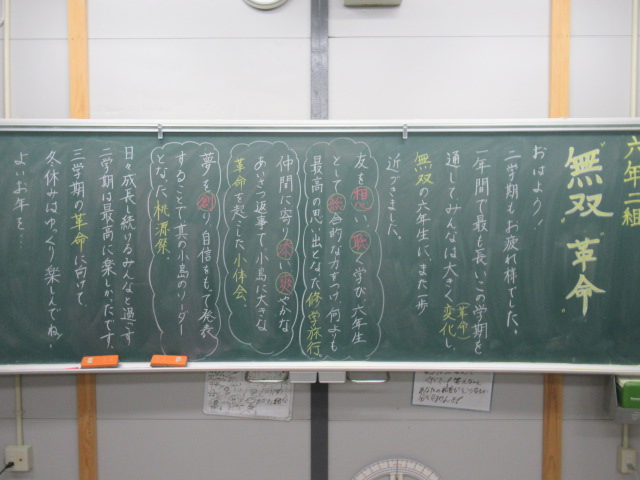 六年二組
無双 革命
おはよう!
二学期もお疲れ様でした。
一年間で最も長いこの学期を
通してみんなは大きく変化し、
(革命)
無双の六年生に、また一歩
近づきました。
友を想い 歓く学び、六年生
として総合的な力をつけ、何よりも
最高の思い出となった修学旅行。
仲間に寄り添い爽やかな
あいさつ返事で小島に大きな
革命を起こした小体会。
夢を創り自信をもって発表
することで真の小島のリーダー
となった桃源祭。
日々成長し続けるみんなと過ごす
二学期は最高に楽しかったです。
三学期の革命に向けて、
冬休みはゆっくり楽しんでね!
よいお年を…